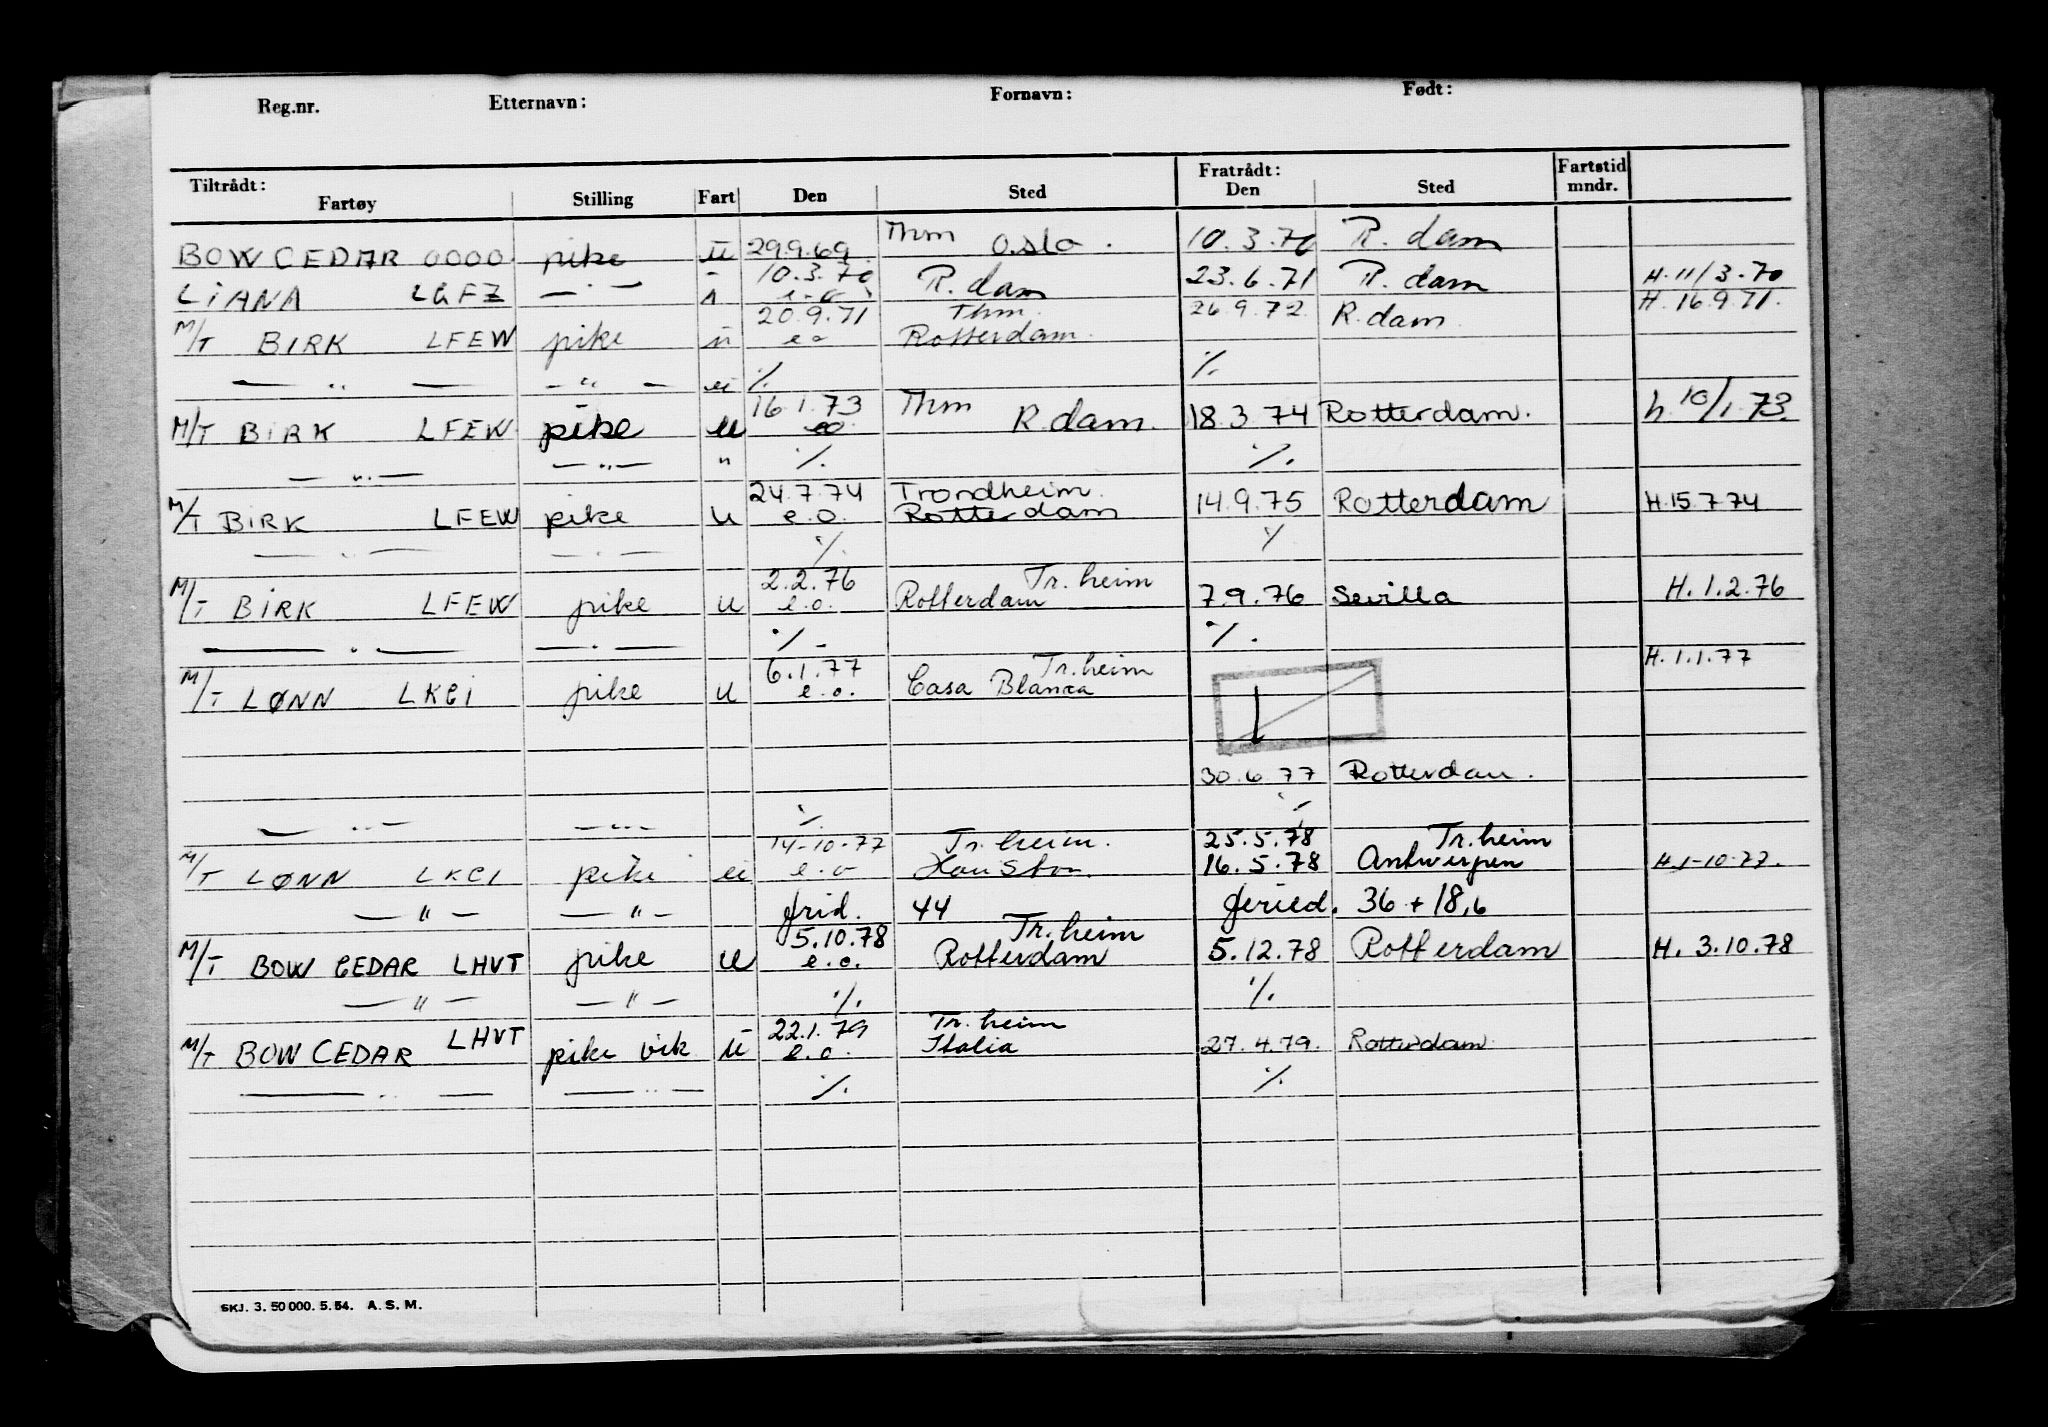 Reg.nr. Etternavn: Fornavn: Født:
Tiltrådt: Fratrådt: Fartstid
Fartøy Stilling Fart Den Sted Den Sted mndr.
BOW CEDAR OOOO pike u 29.9.69 Thm Oslo. 10.3.70 R.dam
LIANA LGFZ — " — " 10.3.70 e.o R.dam 23.6.71 R.dam H.11/3.70
M/T BIRK LFEW pike u 20.9.71 eo Thm. Rotterdam. 26.9.72. R.dam H.16.9.71.
— " — — " — u ·/. ·/.
M/T BIRK LFEW pike u 16.1.73 eo. Thm R.dam. 18.3.74 Rotterdam. h.10/1.73.
— " — — " — " ·/. ·/.
M/T BIRK LFEW pike u 24.7.74 e.o. Trondheim. Rotterdam 14.9.75 Rotterdam H.15.7.74
— " — — " — ·/. ·/.
M/T BIRK LFEW pike u 2.2.76 e.o. Tr.heim Rotterdam 7.9.76 Sevilla H.1.2.76
— " — — " — ·/. ·/.
M/T LØNN LKCI pike u 6.1.77 e.o. Tr.heim Casa Blanca H.1.1.77
30.6.77 Rotterdam.
— " — — " — ·/. ·/.
M/T LØNN LKCI pike u 14-10-77 e.o Tr.heim. Houston. 25.5.78 Tr.heim 16.5.78 Antwerpen H.1-10-77.
— " — — " — frid. 44 feried. 36 + 18,6
M/T BOW CEDAR LHVT pike u 5.10.78 e.o. Tr.heim Rotterdam 5.12.78 Rotterdam H. 3.10.78
— " — — " — ·/. ·/.
M/T BOW CEDAR LHVT pike vik u 22.1.79 e.o. Tr.heim Italia 27.4.79. Rotterdam
— " — — " — ·/. ·/.
SKJ. 3. 50 000. 5. 54. A. S. M.